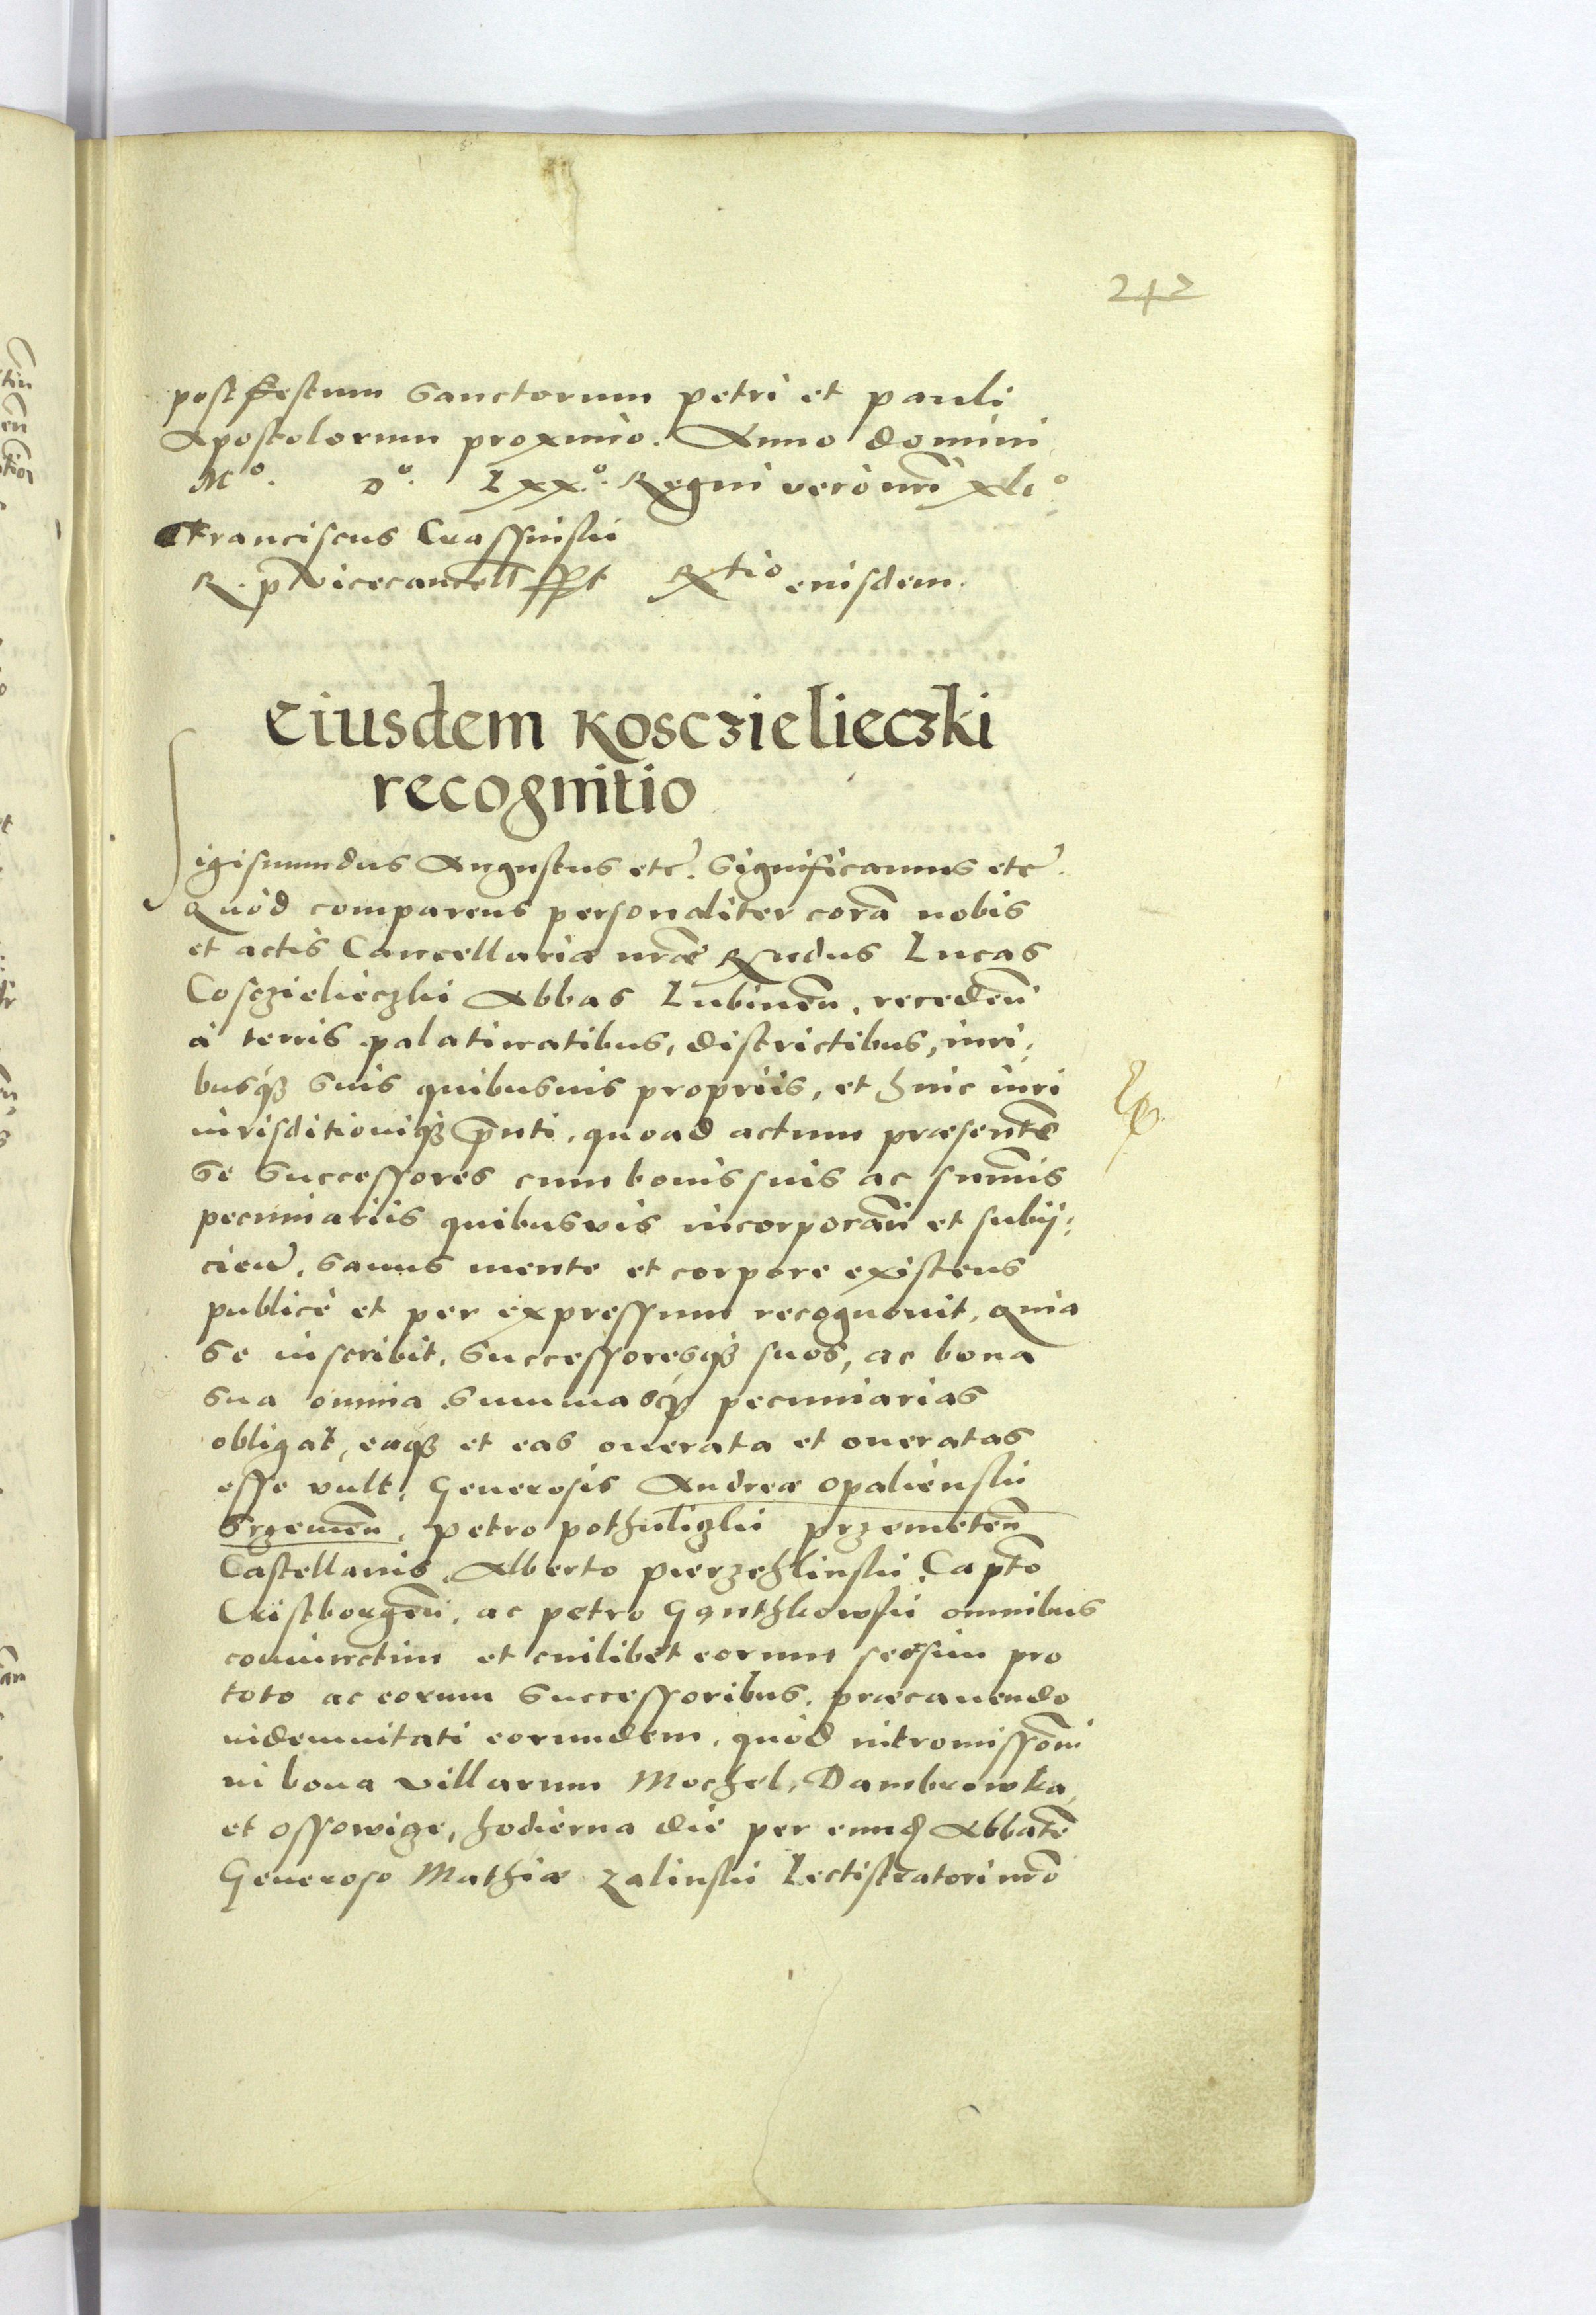 242
post festum Sanctorum petri et pauli
Apostolorum proximo. Anno domini
Mº. Dº. Lxxº. Regni vero nr̃i xliº.
Franciscus Crassinski
R. p̃ Vicecancell sst Rtio eiusdem.
Eiusdem Kosczielieczki
recognitio
Sigismundus Augustus etc. Significamus etc.
Quòd comparens personaliter corã nobis
et actis Cancellariæ nr̃æ Rndus Lucas
Cosczielieczki Abbas Lubineñ, recedeñ
à terris palatinatibus, districtibus, iuri:
busq́ꝫ suis quibusuis propriis, et huic iuri
iurisditioniq́ꝫ p̃nti, quoad actum præsentẽ
se successores cum bonis suis ac sum̃is
pecuniariis quibusvis incorporañ et subij:
cień, sanus mente et corpore existens
publicè et per expressum recognouit, Quia
se inscribit, Successoresq́ꝫ suos, ac bona
sua omnia summasq́ꝫ pecuniarias
obligat, eaq́ꝫ et eas onerata et oneratas
esse vult, Generosis Andreæ Opalienski
Srzemeñ, Petro pothuliczki przemeteñ
Castellanis, Alberto Pierzchlinski Capt̃o
Cristborgeñ, ac petro Ganthkowski omnibus
coniunctim et cuilibet eorum seorsim pro
toto ac eorum Successoribus, præcauendo
indemnitati eorundem, quòd intromissõni
in bona villarum Mochel, Dambrowka,
et Ossowize, hodierna die per eund Abbatẽ
Generoso Mathiæ Zalinski Lectistratori nr̃o